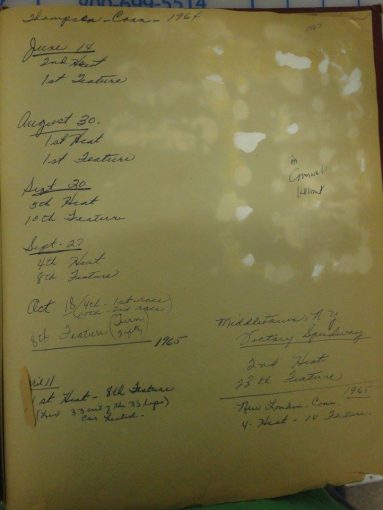 900-699-5514
Thompson - Conn - 1964
1962
June 14
2nd Heat
1st Feature
August 30.
1st Heat
1st Feature
in
Helmet
Sept 20
5th Heat
10th Feature
Sept. 27
4th Heat
8th Feature
Oct 18 (4th - 1st race)
(10th - 2nd race)
8th Feature (Twin
1965
Middletown - N.Y
Victory Speedway
2nd Heat
23th Feature
1965
New London - Conn.
4 - Heat - 10 Feature.
ril 11
1st Heat - 8th Feature
33 out of the 35 laps)
Car Heated -